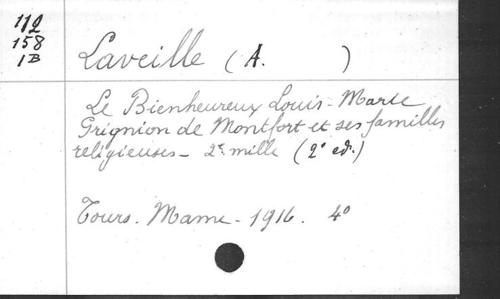 112
158
1B
Laveille (A. )
Le Bienheureux Louis-Marie
Grignion de Montfort et ses familles
religieuses - 2e mille (2e ed.)
Tours. Mame - 1916. 4°